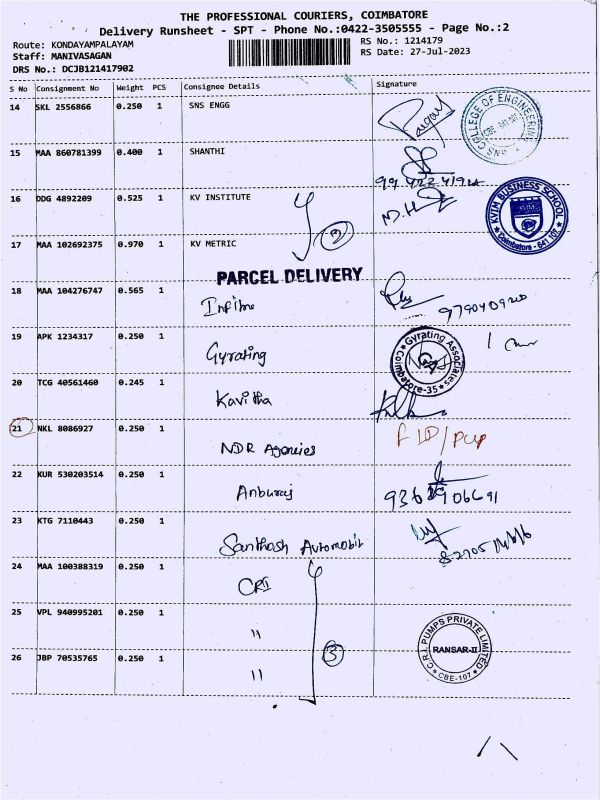 THE PROFESSIONAL COURIERS, COIMBATORE
Delivery Runsheet - SPT - Phone No.:0422-3505555 - Page No.:2
Route: KONDAYAMPALAYAM RS No.: 1214179
Staff: MANIVASAGAN RS Date: 27-Jul-2023
DRS No.: DCJB121417902
S No Consignment No Weight PCS Consignee Details Signature
14 SKL 2556866 0.250 1 SNS ENGG
SNS COLLEGE OF ENGINEERING
CBE-641 107
15 MAA 860781399 0.400 1 SHANTHI
16 DDG 4892209 0.525 1 KV INSTITUTE
KVIM BUSINESS SCHOOL
Coimbatore - 641 107
2
17 MAA 102692375 0.970 1 KV METRIC
PARCEL DELIVERY
18 MAA 104276747 0.565 1
9790409200
19 APK 1234317 0.250 1 Gyrating
Gyrating Associates
GA
Coimbatore-35
20 TCG 40561460 0.245 1 Kavitha
21 NKL 8086927 0.250 1 NDR Agencies
22 KUR 530203514 0.250 1 Anburaj
23 KTG 7110443 0.250 1 Santhosh Automobil
24 MAA 100388319 0.250 1 CRI
25 VPL 940995201 0.250 1 "
3
C.R.I. PUMPS PRIVATE LIMITED
RANSAR-II
CBE-107
26 JBP 70535765 0.250 1 "